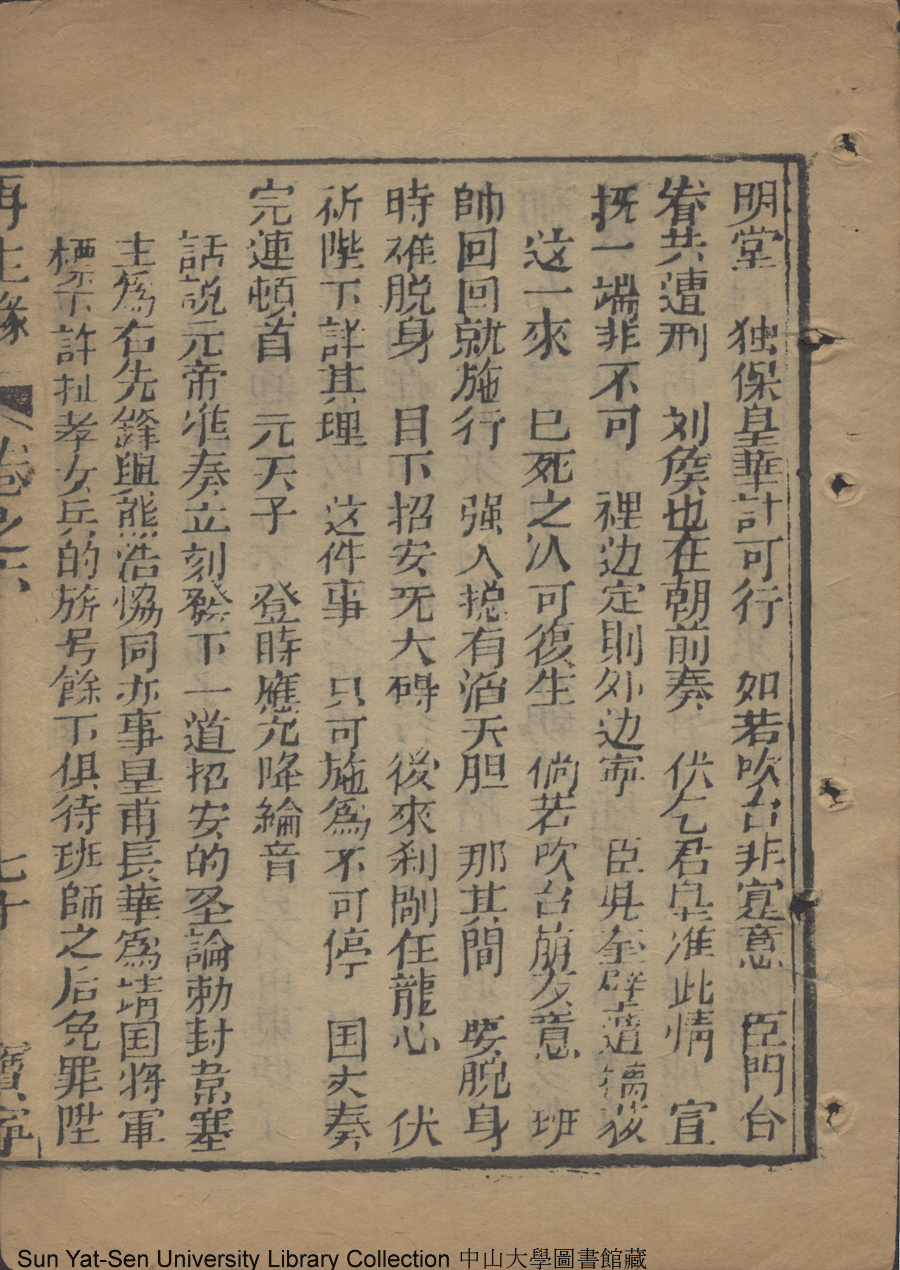 明堂　独保皇華計可行　如若吹台非寔意　臣門台
眷共遭刑　刘侯也在朝前奏　伏乞君皇准此情　宣
抚一端非不可　裡边定則外边寜　臣見至
这一來　已死之人可復生　倘若吹台崩友意　班
帥回回就施行　强人揔有滔天胆　那其間　要脱身
時难脱身　目下招安旡大碍　後來刹剮在龍心　伏
祈陛下詳其理　这件事　只可施為不可停　国丈奏
完連頓首　元天子　登時應允降綸音
話説元帝准奏立刻發下一道招安的圣論勅封韋塞
主為右先鋒與熊浩恊同亦事皇甫長華為靖国將軍
標下許扯孝女兵的旂号餘下俱待班師之后免罪陞
再生緣　卷之六　七十　寶寜
Sun Yat-Sen University Library Collection 中山大學圖書館藏